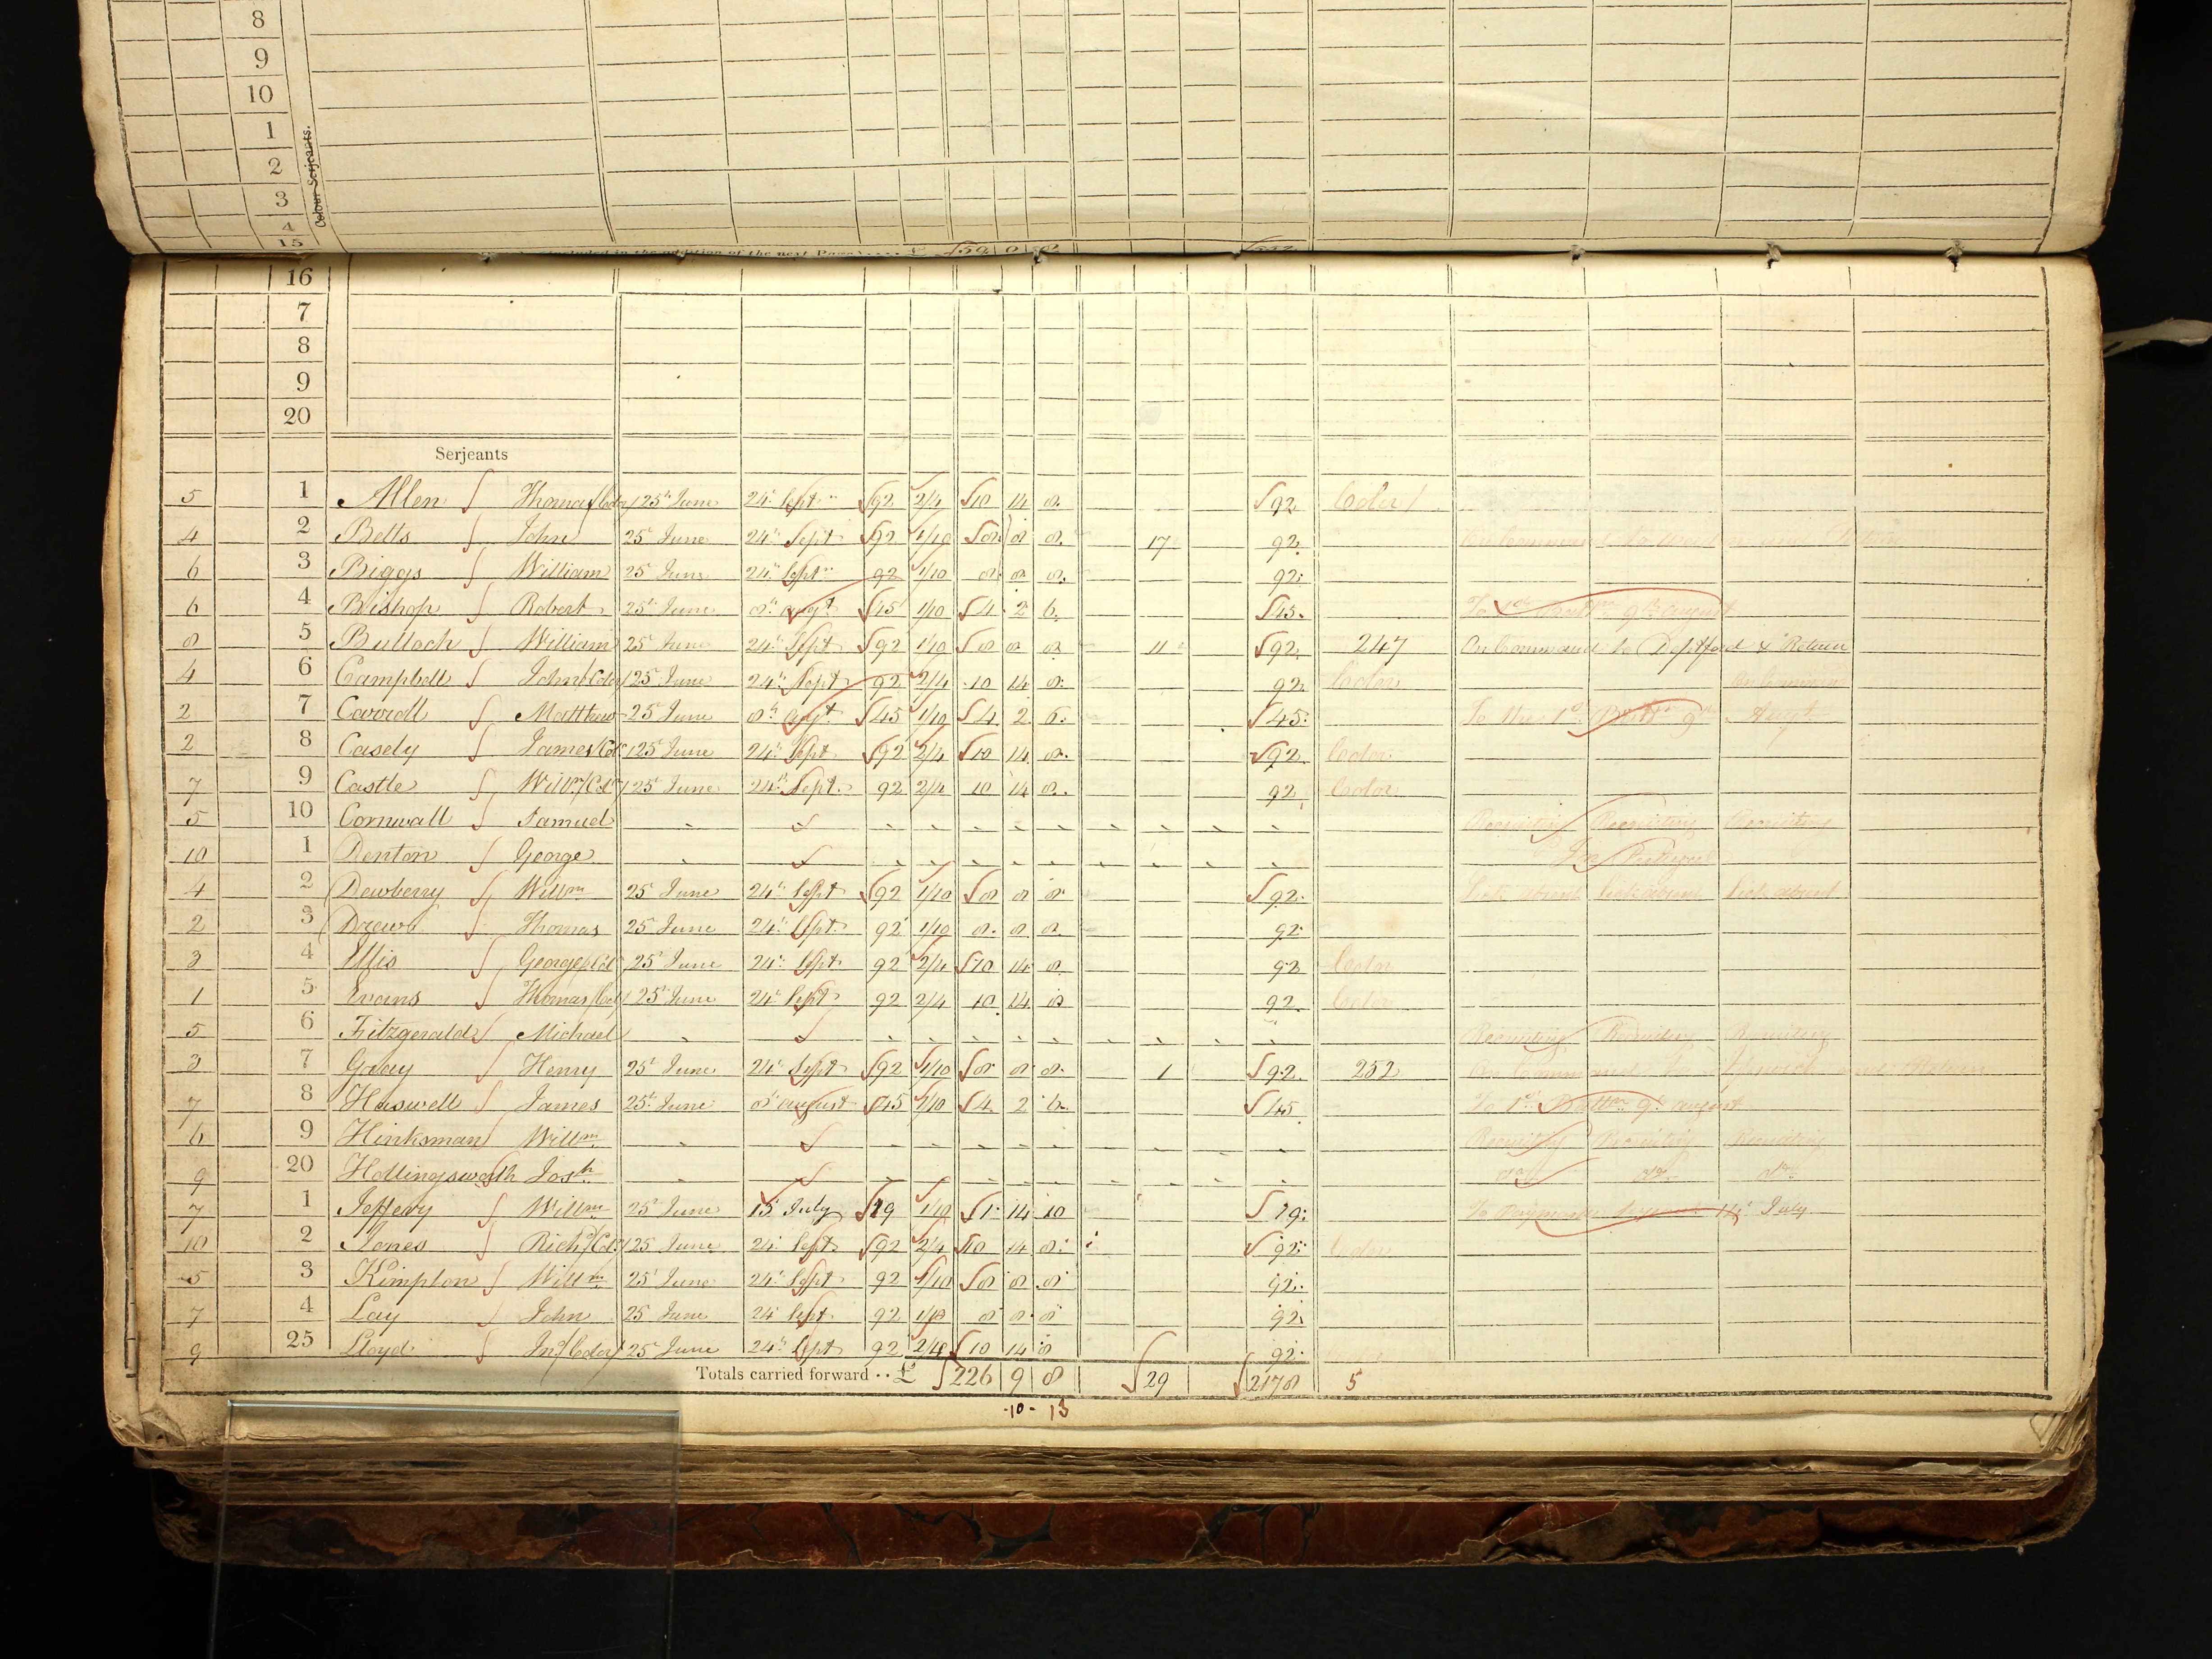 8
9
10
1
2
3
4
15
Colour Serjeants.
included in the addition of the next Page
16
7
8
9
20
Serjeants
5 1 Allen Thomas (Color) 25th June 24th Sept 92 2/4 10 14 8 92 Color
4 2 Betts John 25 June 24th Sept 92 1/10 8 8 8 17 92 On Command to and Return
6 3 Biggs William 25 June 24th Sept 92 1/10 8 8 8 92
6 4 Bishop Robert 25th June 8th Augt 45 1/10 4 2 6 45 To 1st Battn 9th August
8 5 Bulloch William 25 June 24th Sept 92 1/10 8 8 8 11 92 247 On Command to Deptford & Return
4 6 Campbell John (Color) 25 June 24th Sept 92 2/4 10 14 8 92 Color On Command
2 7 Carroll Matthew 25 June 8th Augt 45 1/10 4 2 6 45 To the 1st Battn 9th Augt
2 8 Casely James (Colr) 25 June 24th Sept 92 2/4 10 14 8 92 Color
7 9 Castle Willm (Colr) 25 June 24th Sept 92 2/4 10 14 8 92 Color
5 10 Cornwall Samuel Recruiting Recruiting Recruiting
10 1 Denton George
4 2 Dewberry Willm 25 June 24th Sept 92 1/10 8 8 8 92 Sick absent Sick absent Sick absent
2 3 Drewe Thomas 25 June 24th Sept 92 1/10 8 8 8 92
3 4 Ellis George (Colr) 25 June 24th Sept 92 2/4 10 14 8 92 Color
1 5 Evans Thomas (Color) 25th June 24th Sept 92 2/4 10 14 8 92 Color
5 6 Fitzgerald Michael Recruiting Recruiting Recruiting
3 7 Henry 25th June 24th Sept 92 1/10 8 8 8 1 92 252 On Command to Ipswich and
7 8 Haswell James 25th June 8th August 45 1/10 4 2 6 45 To 1st Battn 9th August
6 9 Hinksman Willm Recruiting Recruiting Recruiting
9 20 Hollingsworth Josh do do do
7 1 Jeffery Willm 25th June 15 July 19 1/10 1 14 10 19 To Paymaster Serjeant 14th July
10 2 Jones Richd (Colr) 25 June 24 Sept 92 2/4 10 14 8 92 Color
5 3 Kimpton Willm 25th June 24th Sept 92 1/10 8 8 8 92
7 4 Lay John 25 June 24 Sept 92 1/10 8 8 8 92
9 25 Lloyd Jno (Color) 25th June 24th Sept 92 10 14 8 92
Totals carried forward ·· £ 226 9 8 29 2178 5
10 - 13